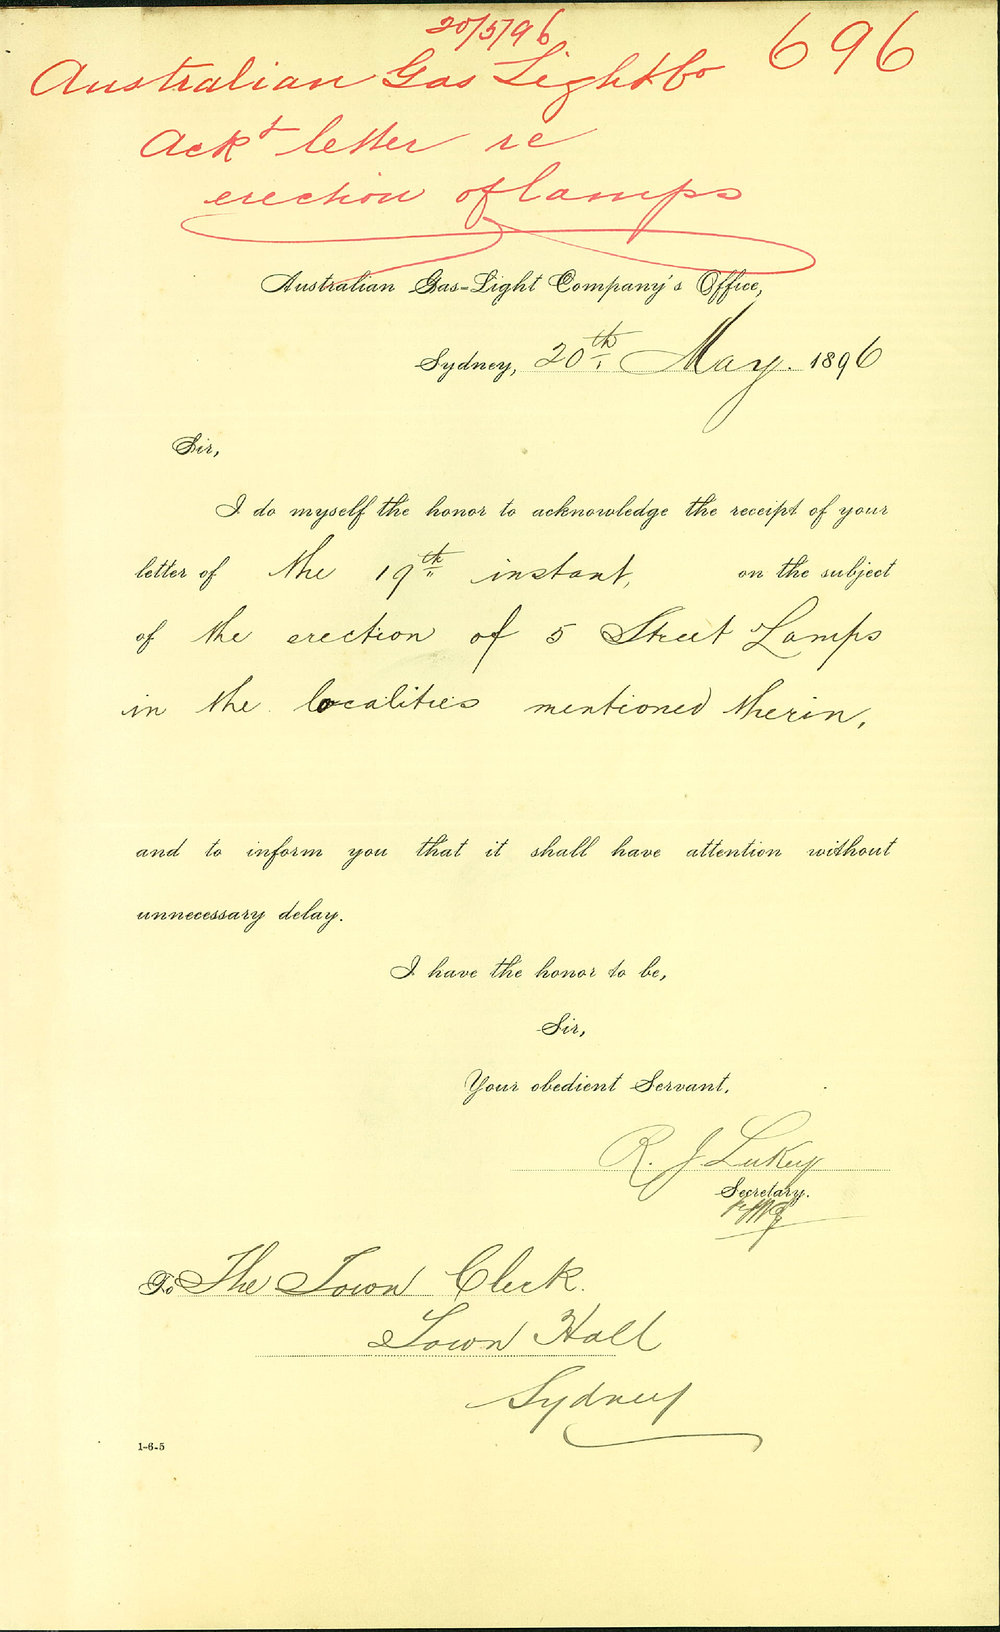 20/5/96
696
Australian Gas Light Co
Ackt letter re
erection of lamps
Australian Gas-Light Company's Office,
Sydney, 20th May. 1896
Sir,
I do myself the honor to acknowledge the receipt of your
letter of the 19th instant, on the subject
of the erection of 5 Street Lamps
in the localities mentioned therin,
and to inform you that it shall have attention without
unnecessary delay.
I have the honor to be,
Sir,
Your obedient Servant,
R. J Lukey
Secretary.
To The Town Clerk.
Town Hall
Sydney
1-6-5